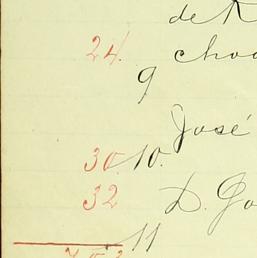 de
24. choc
9
José
30. 10.
32 D. Go
11